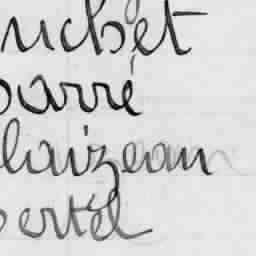 uchet
barré
laizeau
bertel